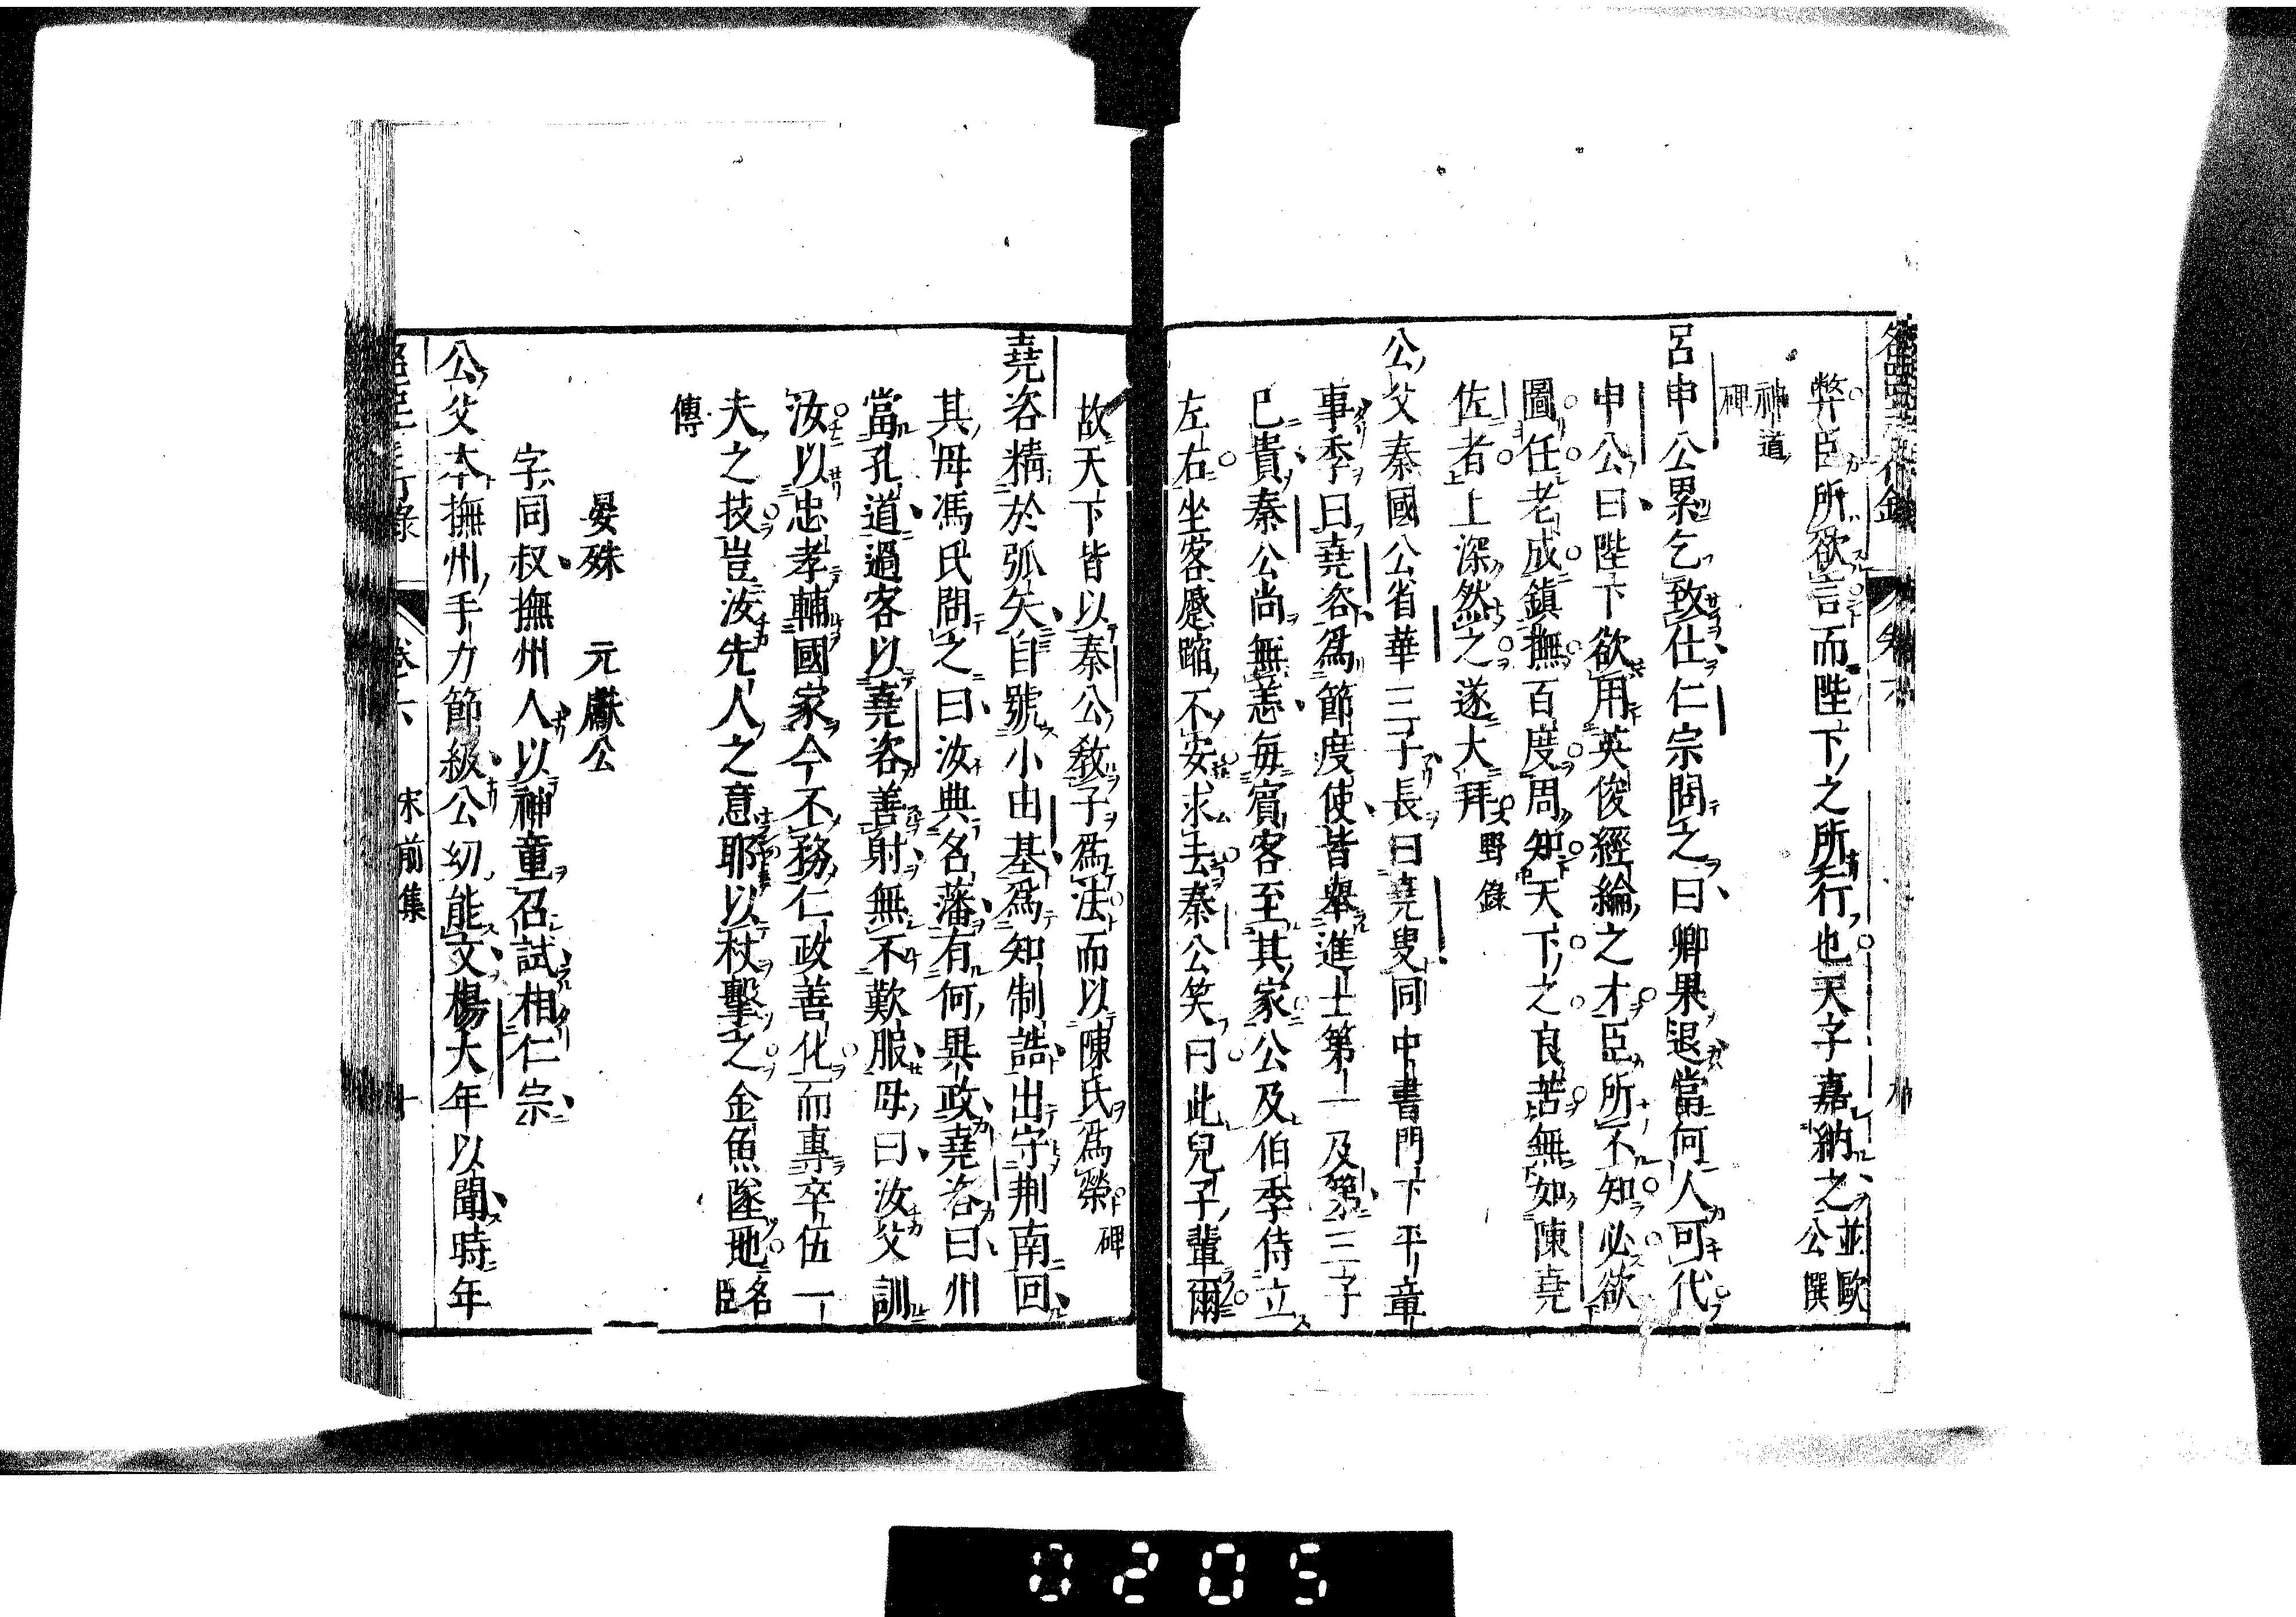 弊臣所欲言而陛下之所行也天子嘉納之並歐公撰
神道
碑
呂申公累乞致仕仁宗問之曰卿果退當何人可代
申公曰陛下欲用英俊經綸之才臣所不知必欲
圖任老成鎮撫百度周知天下之良苦無如陳堯
佐者上深然之遂大拜野錄
公父秦國公省華三子長曰堯叟同中書門下平章
事季曰堯咨爲節度使皆舉進士第一及第三子
已貴秦公尚無恙每賓客至其家公及伯季侍立
左右坐客蹙踧不安求去秦公笑曰此兒子輩爾
故天下皆以秦公敎子爲法而以陳氏爲榮碑
堯咨精於弧矢自號小由基爲知制誥出守荆南回
其母馮氏問之曰汝典名藩有何異政堯咨曰州
當孔道過客以堯咨善射無不歎服母曰汝父訓
汝以忠孝輔國家今不務仁政善化而專卒伍一
夫之技豈汝先人之意耶以杖擊之金魚墜地名臣
傳
晏殊　元獻公
字同叔撫州人以神童召試相仁宗
公父本撫州手力節級公幼能文楊大年以聞時年
卷六　宋前集　十
0205